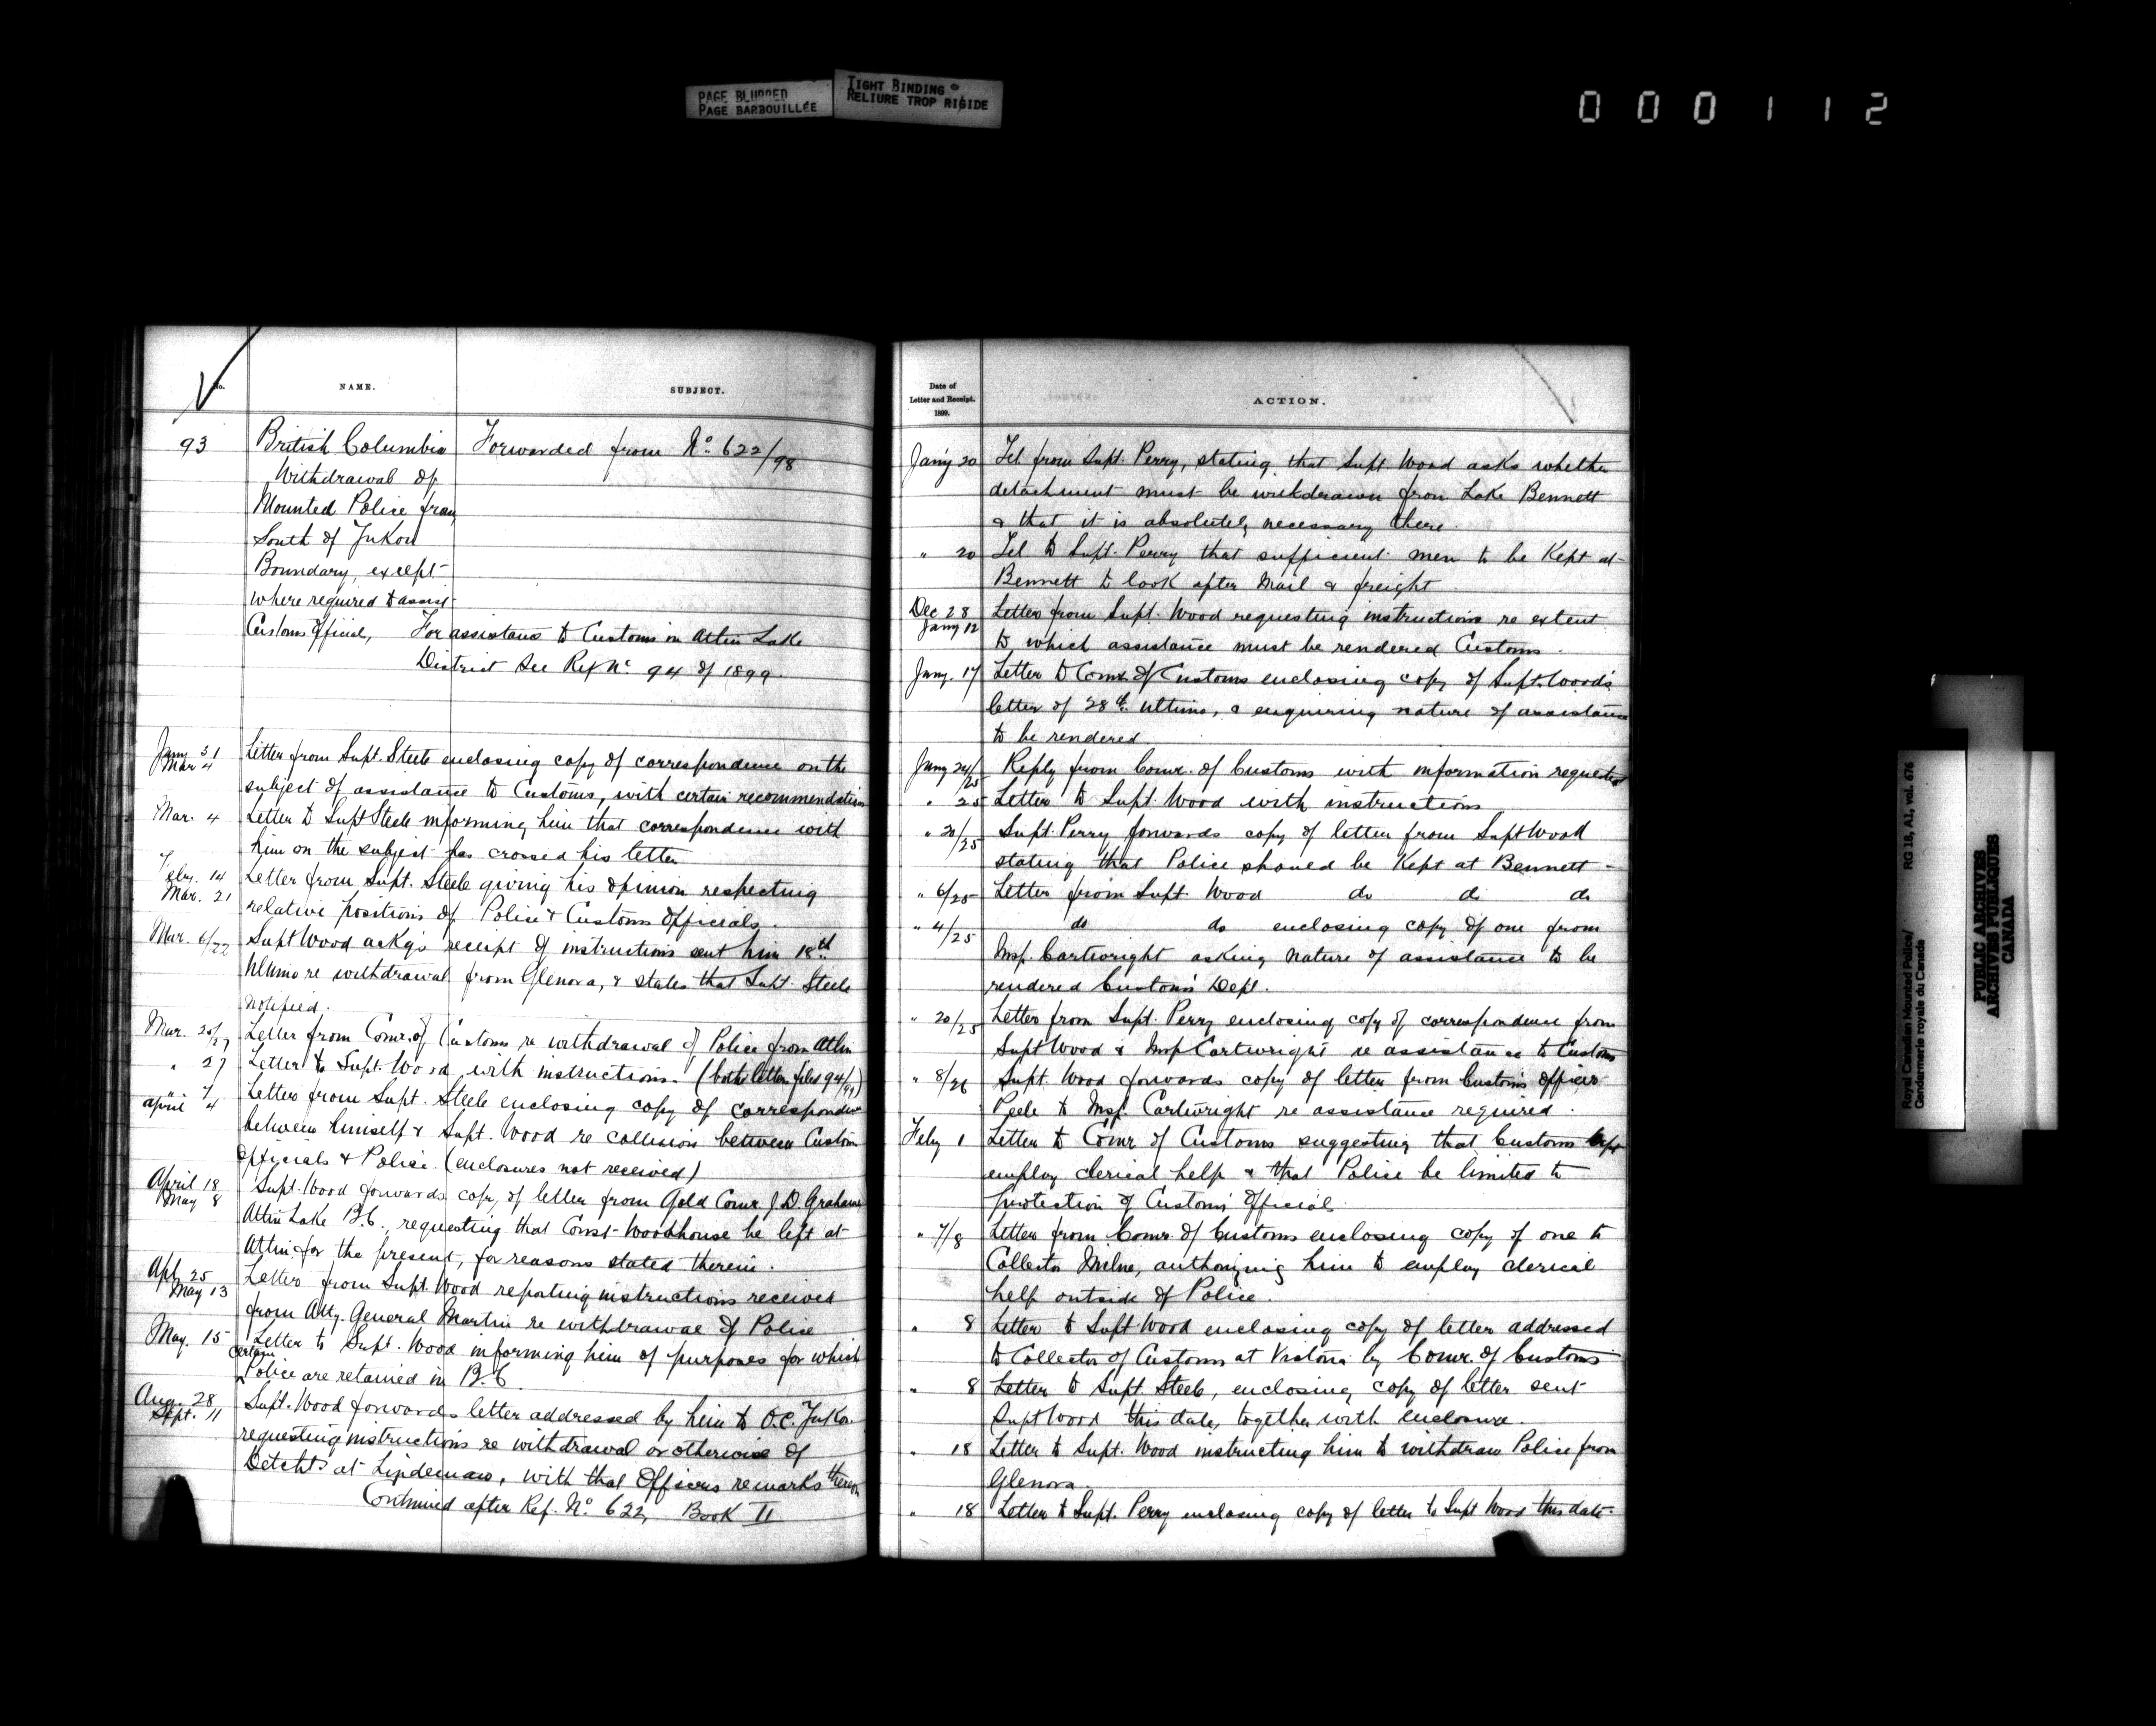 PAGE BLURRED
PAGE BARBOUILLÉE
TIGHT BINDING
RELIURE TROP RIGIDE
000112
No.
NAME.
SUBJECT.
93
British Columbia
Forwarded from No. 622/98
Withdrawal of
Mounted Police from
South of Yukon
Boundary, except
where required to assist
Customs Official,
For assistance to Customs in Atlin Lake
District See Ref No. 94 of 1899.
Jany 31
Mar 4
Letter from Supt. Steele enclosing copy of correspondence on the
subject of assistance to Customs, with certain recommendations
Mar. 4
Letter to Supt Steele informing him that correspondence with
him on the subject has crossed his letter
Feby. 14
Mar. 21
Letter from Supt. Steele giving his opinion respecting
relative positions of Police & Customs Officials.
Mar. 6/22
Supt Wood ackg's receipt of instructions sent him 18th
Ultimo re withdrawal from Glenora, & states that Supt. Steele
notified.
Mar. 20/27
Letter from Comr. of Customs re withdrawal of Police from Atlin
" 27
Letter to Supt. Wood with instructions. (both letters filed 94/99)
" 7
April 4
Letter from Supt. Steele enclosing copy of correspondence
between himself & Supt. Wood re collision between Custom
Officials & Police. (enclosures not received)
April 18
May 8
Supt. Wood forwards copy of letter from Gold Comr. J. D. Grahame
Atlin Lake B.C., requesting that Const Woodhouse be left at
Atlin for the present, for reasons stated therein.
Apl. 25
May 13
Letter from Supt. Wood reporting instructions received
from Atty. General Martin re withdrawal of Police
May. 15
Letter to Supt. Wood informing him of purposes for which
certain
Police are retained in B.C.
Aug. 28
Sept. 11
Supt. Wood forwards letter addressed by him to O.C. Yukon
requesting instructions re withdrawal or otherwise of
Detchts at Lindeman, with that Officers remarks thereon
Continued after Ref. No. 622, Book II
Date of
Letter and Receipt.
1899.
ACTION.
Jan'y 20
Tel from Supt. Perry, stating that Supt. Wood asks whether
detachment must be withdrawn from Lake Bennett
& that it is absolutely necessary there.
" 20
Tel to Supt. Perry that sufficient men to be Kept at
Bennett to look after Mail & freight
Dec 28
Jany 12
Letter from Supt. Wood requesting instructions re extent
to which assistance must be rendered Customs.
Jany. 17
Letter to Comr. of Customs enclosing copy of Supt. Wood's
letter of 28th ultimo, & enquiring nature of assistance
to be rendered.
Jany 24/25
Reply from Comr. of Customs with information requested
" 25
Letter to Supt. Wood with instructions
" 20/25
Supt. Perry forwards copy of letter from Supt Wood
stating that Police should be Kept at Bennett -
" 6/25
Letter from Supt Wood do do do
" 4/25
do do enclosing copy of one from
Insp. Cartwright asking nature of assistance to be
rendered Customs Dept.
" 20/25
Letter from Supt. Perry enclosing copy of correspondence from
Supt Wood & Insp Cartwright re assistance to Customs
" 8/26
Supt. Wood forwards copy of letter from Customs Officer
Peele to Insp. Cartwright re assistance required.
Feby 1
Letter to Comr of Customs suggesting that Customs Dept
employ clerical help & that Police be limited to
protection of Customs Official.
" 7/8
Letter from Comr. of Customs enclosing copy of one to
Collector Milne, authorizing him to employ clerical
help outside of Police.
" 8
Letter to Supt Wood enclosing copy of letter addressed
to Collector of Customs at Victoria by Comr. of Customs
" 8
Letter to Supt. Steele, enclosing copy of letter sent
Supt Wood this date, together with enclosure.
" 18
Letter to Supt. Wood instructing him to withdraw Police from
Glenora.
" 18
Letter to Supt. Perry enclosing copy of letter to Supt Wood this date.
Royal Canadian Mounted Police/ RG 18, A1, vol. 676
Gendarmerie royale du Canada
PUBLIC ARCHIVES
ARCHIVES PUBLIQUES
CANADA